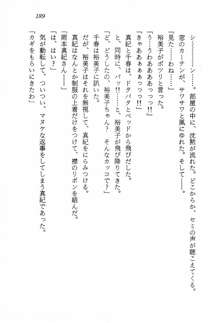 189
窓のカーテンが、フワフワと風にゆれる。そして――。
……部屋の中に、沈黙が流れる。どこからか、セミの声が聴こえてくる。
「見た……わね」
裕美子がボツリと言う。
「うわあああああっっっ!!」
真紀と千春は、ドタバタとベッドから飛び降りた。
と、同時に、バッ!!……と、裕美子が飛び降りる。
「ゆ、裕美子ちゃん? そんなカッコで?」
千春は、裕美子に訊いた。
裕美子は、それを無視して、真紀に言う。
真紀はなんとか制服の上着だけをつけて、襟のリボンを結んだ。
「岡本真紀さん!」
「は、はい!」
気が動転して、つい、マヌケな返事をしてしまう真紀であった。
「カギをもらいたいのだけど」